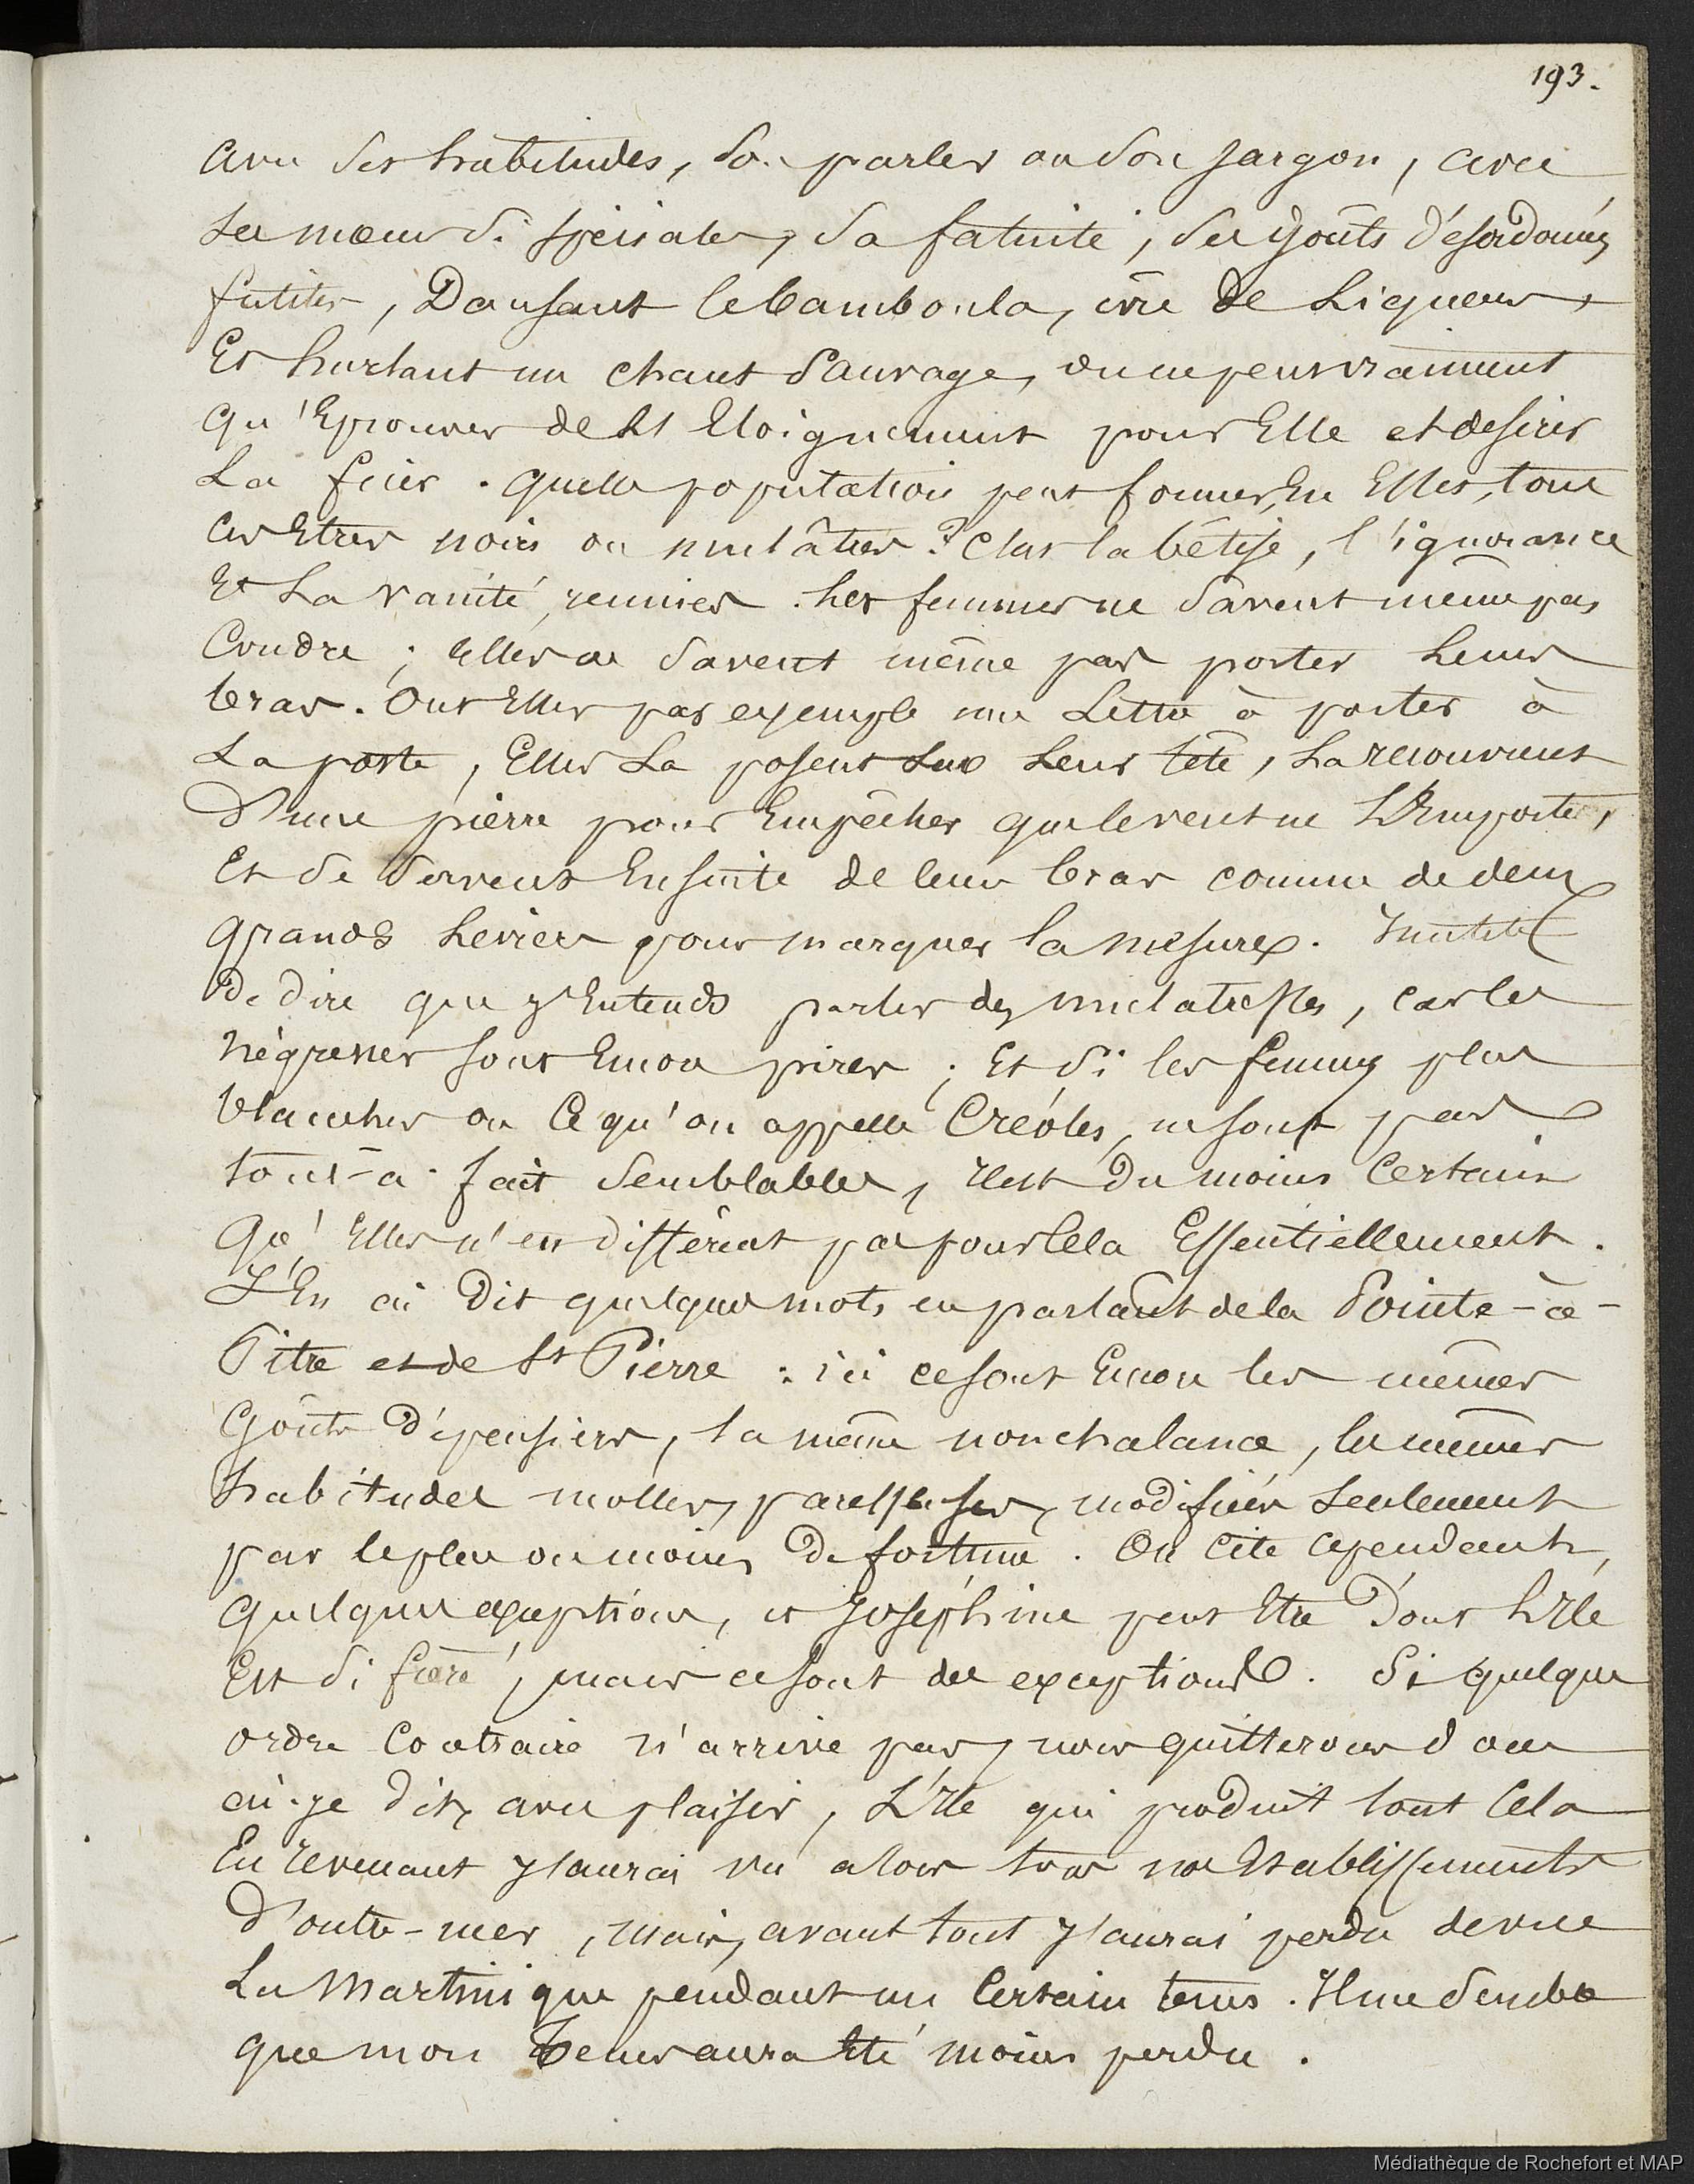 193.
avec ses habitudes, son parler ou son jargon, avec
ses mœurs si spéciales, sa fatuité, ses goûts désordonnés
futiles, Dansant le bamboula, ivre de Liqueurs,
Et hurlant un chant Sauvage, on ne peut vraiment
qu'Eprouver de L'Eloignement pour Elle et desirer
La fuir. quelle population peut former, En Elles, tous
ces Etres noirs ou mulâtres? C'est la bêtise, l'ignorance
Et La vanité, reunies. Les femmes ne Savent même pas
Coudre; Elles ne Savent même pas porter Leurs
bras. Ont Elles par exemple une Lettre à porter à
La poste, Elles La posent Sur Leur tête, La recouvrent
D'une pierre pour Empêcher que le vent ne L'Emporte,
Et Se Servent Ensuite de leurs bras comme de deux
grands Leviers pour marquer la mesure. Inutile
De dire que j'Entends parler des mulatresses, car les
négresses sont Encore pires; Et Si les femmes plus
blanches ou Ce qu'on appelle Créoles, ne sont pas
tout-à-fait Semblables, il est Du moins Certain
Qu'Elles n'en diffèrent pas pour Cela Essentiellement.
J'En ai Dit quelques mots en parlant de la Pointe-à-
Pitre et de St Pierre: ici ce sont Encore les mêmes
Goûts Dépensiers, la même nonchalance, les mêmes
habitudes molles, paresseuses, modifiées Seulement
par le plus ou moins De fortune. On Cite Cependant,
quelques exceptions, et Joséphine peut Etre Dont L'Ile
Est Si fière, mais ce sont des exceptions. Si quelque
ordre Contraire n'arrive pas, nous quitterons donc
ai-je dit, avec plaisir, L'Ile qui produit tout Cela
En revenant j'aurai vu alors tous nos Etablissements
D'outre-mer, mais, avant tout j'aurai perdu de vue
La Martinique pendant un Certain tems. Il me Semble
que mon Tems aura Eté moins perdu.
Médiathèque de Rochefort et MAP